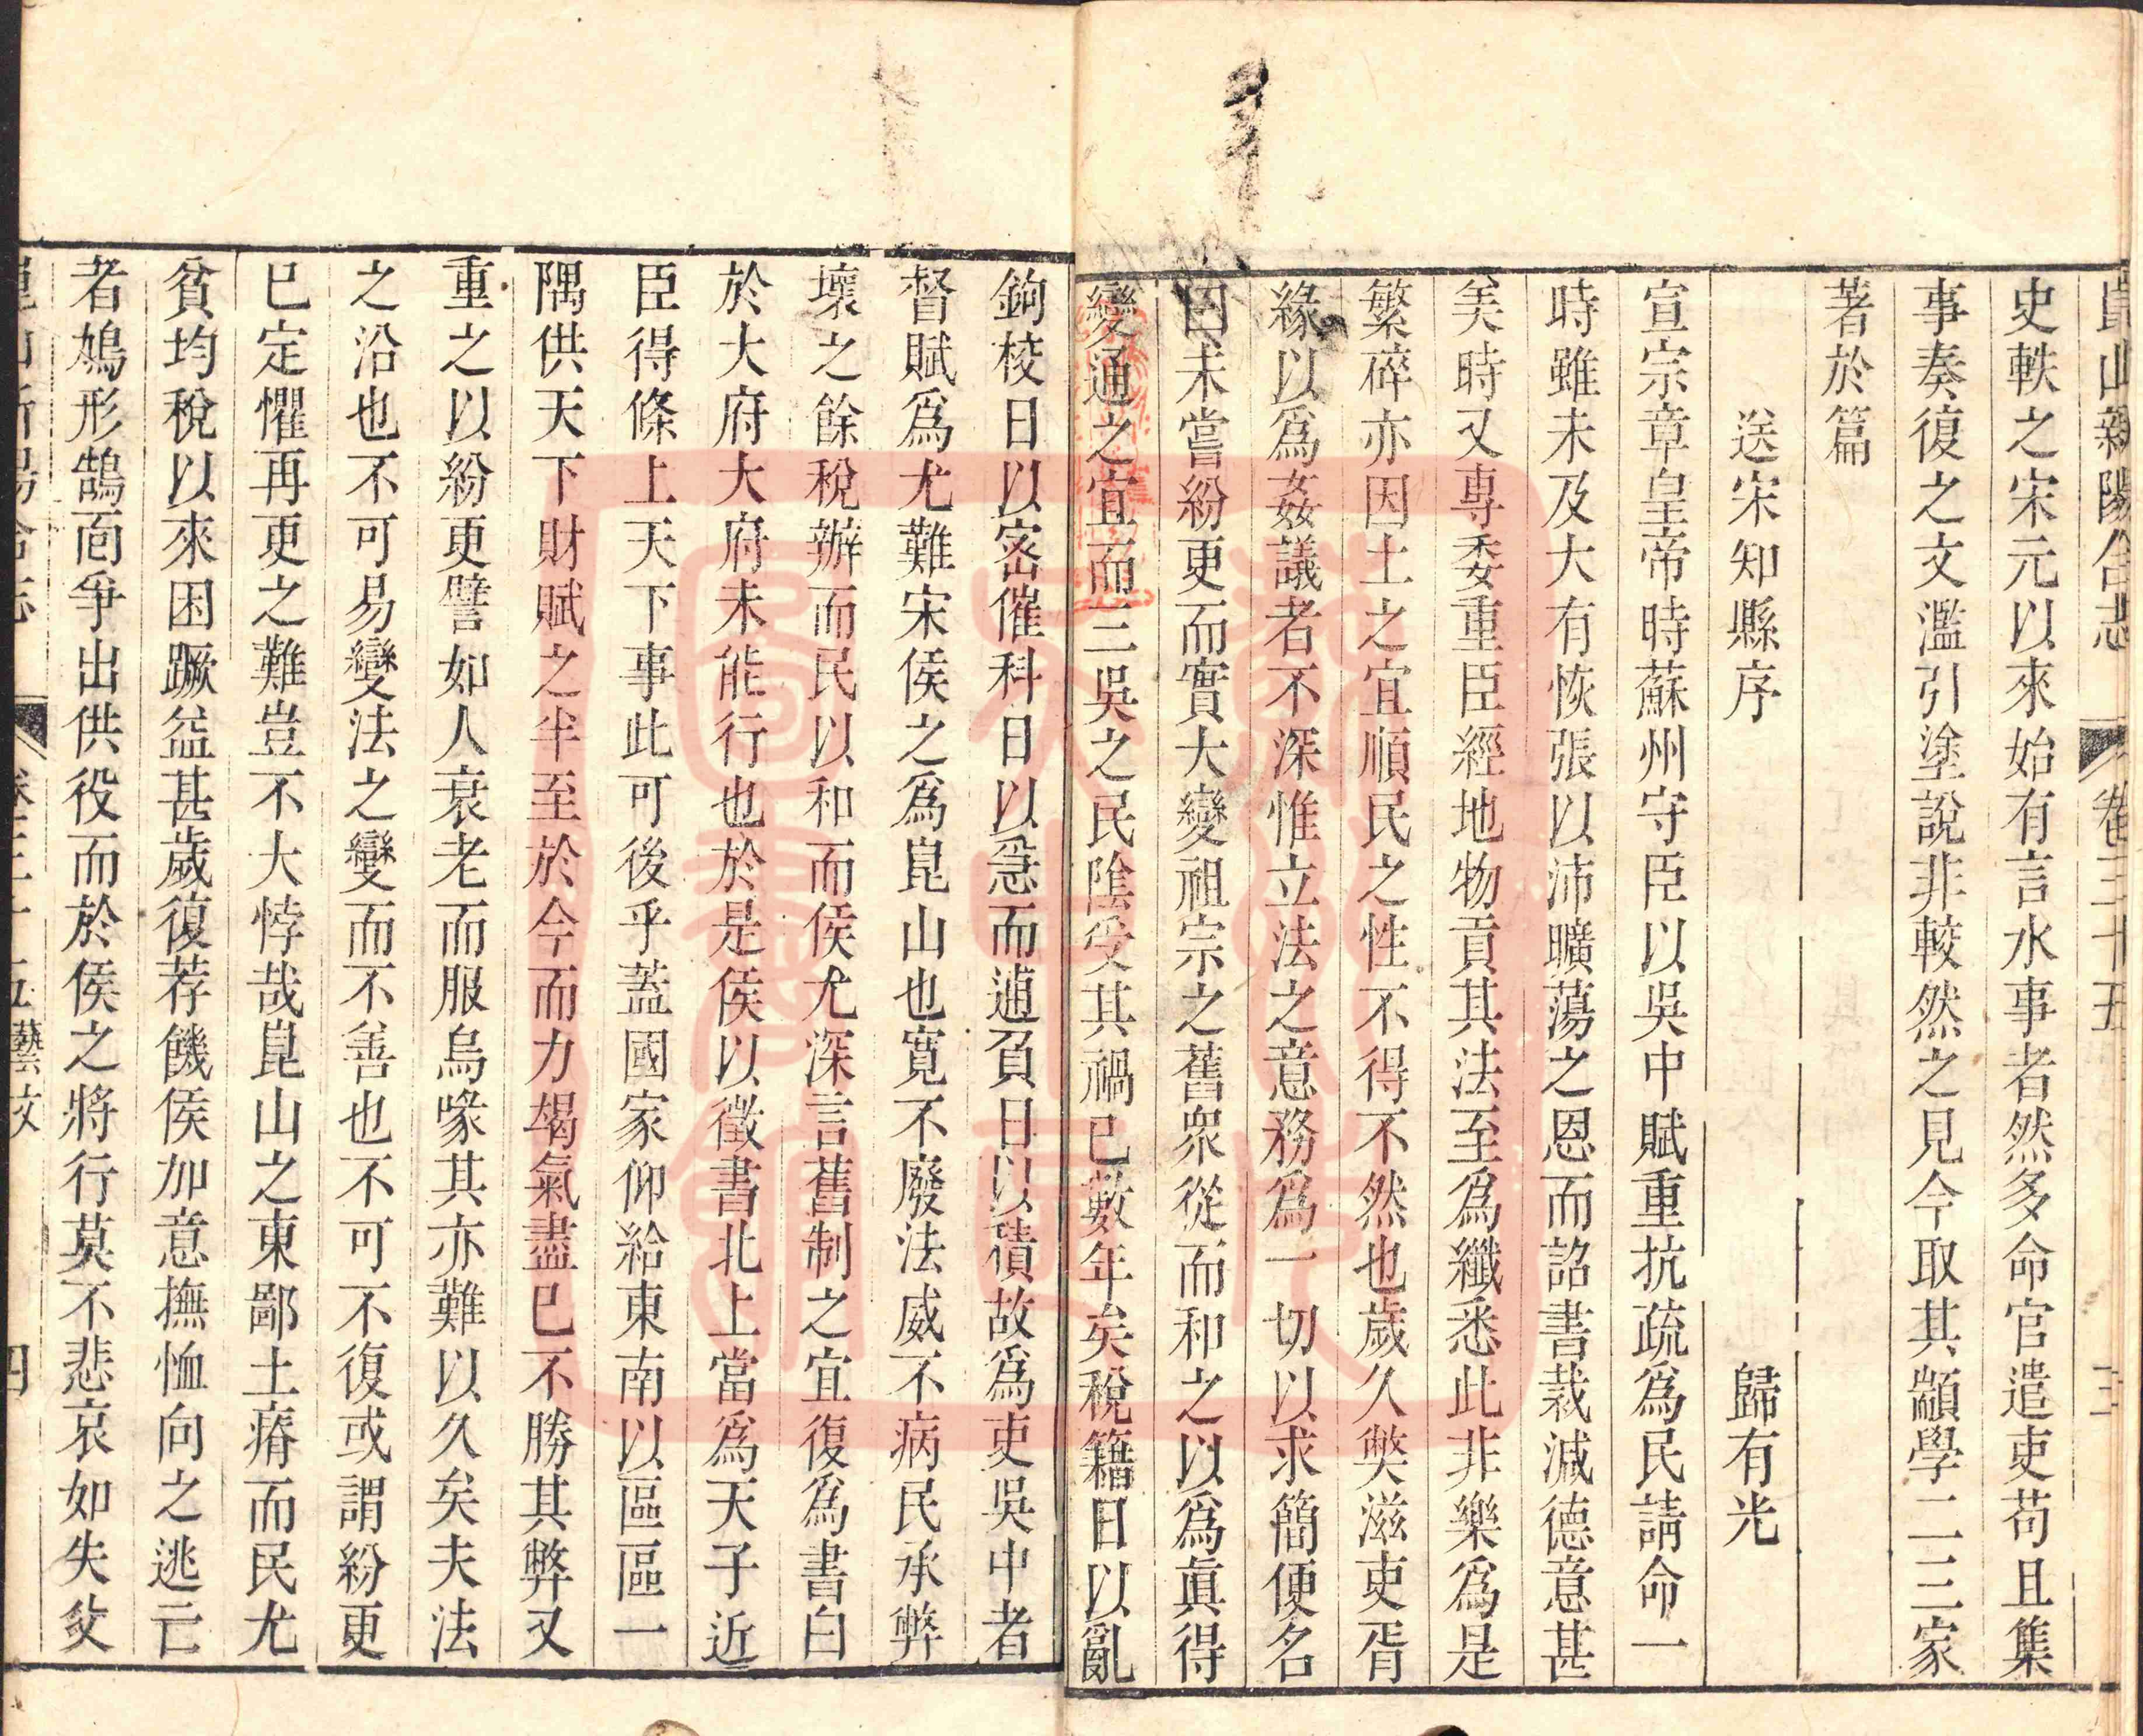 崑山新陽合志 卷三十五 三
史軼之宋元以來始有言水事者然多命官遣吏苟且集
事奏復之文濫引塗說非較然之見今取其顓學二三家
著於篇
送宋知縣序 歸有光
宣宗章皇帝時蘇州守臣以吳中賦重抗疏爲民請命一
時雖未及大有恢張以沛曠蕩之恩而詔書裁減德意甚
美時又專委重臣經地物貢其法至爲纖悉此非樂爲是
繁碎亦因土之宜順民之性不得不然也歲久獘滋吏胥
緣以爲姦議者不深惟立法之意務爲一切以求簡便名
曰未嘗紛更而實大變祖宗之舊衆從而和之以爲眞得
變通之宜而三吳之民陰受其禍已數年矣稅籍日以亂
鉤校日以密催科日以急而逋負日以積故爲吏吳中者
督賦爲尤難宋侯之爲崑山也寛不廢法威不病民承弊
壞之餘稅辦而民以和而侯尤深言舊制之宜復爲書白
於大府大府未能行也於是侯以徵書北上當爲天子近
臣得條上天下事此可後乎蓋國家仰給東南以區區一
隅供天下財賦之半至於今而力竭氣盡已不勝其弊又
重之以紛更譬如人衰老而服烏喙其亦難以久矣夫法
之沿也不可易變法之變而不善也不可不復或謂紛更
已定懼再更之難豈不大悖哉崑山之東鄙土瘠而民尤
貧均稅以來困蹶益甚歲復荐饑侯加意撫恤向之逃亡
者鳩形鵠面爭出供役而於侯之將行莫不悲哀如失父
崑山新陽合志 卷三十五 藝文 四